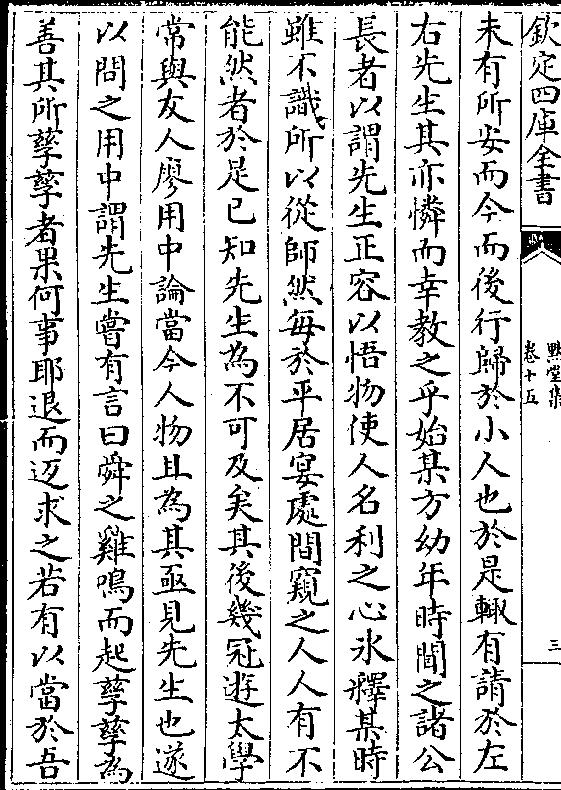 欽定四庫全書
默堂集
卷十五
三
未有所安而今而後行歸於小人也於是輒有請於左
右先生其亦憐而幸教之乎始某方幼年時聞之諸公
長者以謂先生正容以悟物使人名利之心氷釋某時
雖不識所以從師然每於平居宴處間窺之人人有不
能然者於是已知先生為不可及矣其後幾冠遊太學
常與友人廖用中論當今人物且為其亟見先生也遂
以問之用中謂先生嘗有言曰舜之雞鳴而起孳孳為
善其所孳孳者果何事耶退而迈求之若有以當於吾